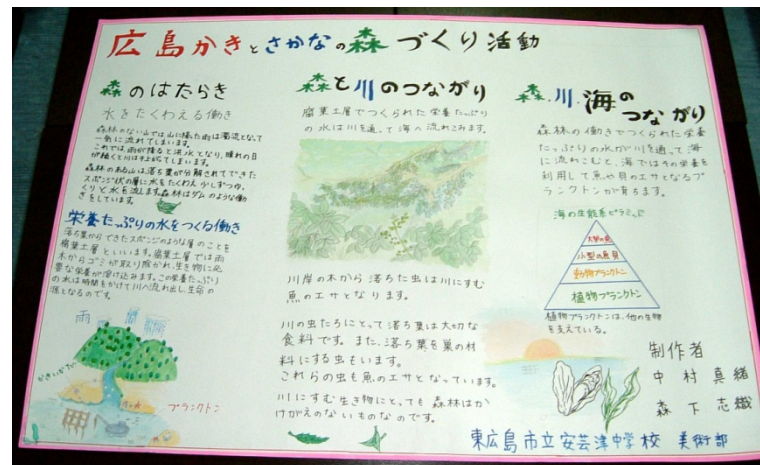 広島かきとさかなの森づくり活動
森のはたらき
水をたくわえる働き
森林のない山では山に降った雨は濁流となって
一気に流れてしまいます。
これでは、雨が降ると洪水となり、晴れの日
が続くと川は干上がってしまいます。
森林のある山は落ち葉が分解されてできた
スポンジ状の層に水をたくわえ少しずつゆっ
くりと水を流します。森林はダムのような働
きをしています。
栄養たっぷりの水をつくる働き
落ち葉からできたスポンジのような層のことを
腐葉土層といいます。腐葉土層では雨
水からゴミが取り除かれ、生き物に必
要な栄養が溶け込みます。この栄養たっぷり
の水は時間をかけて川へ流れ出し生命の
源となるのです。
雨
かきいかだ
プランクトン
森と川のつながり
腐葉土層でつくられた栄養たっぷり
の水は川を通って海へ流れこみます。
川岸の木から落ちた虫は川にすむ
魚のエサとなります。
川の虫たちにとって落ち葉は大切な
食料です。また、落ち葉を巣の材
料にする虫もいます。
これらの虫も魚のエサとなっています。
川にすむ生き物にとっても森林はか
けがえのないものなのです。
森・川・海の
つながり
森林の働きでつくられた栄養
たっぷりの水が川を通って海
に流れこむと、海ではその栄養を
利用して魚や貝のエサとなるプ
ランクトンが育ちます。
海の生態系ピラミッド
大型の魚
小型の魚貝
動物プランクトン
植物プランクトン
植物プランクトンは、他の生物
を支えている。
制作者
中村真緒
森下志織
東広島市立安芸津中学校 美術部